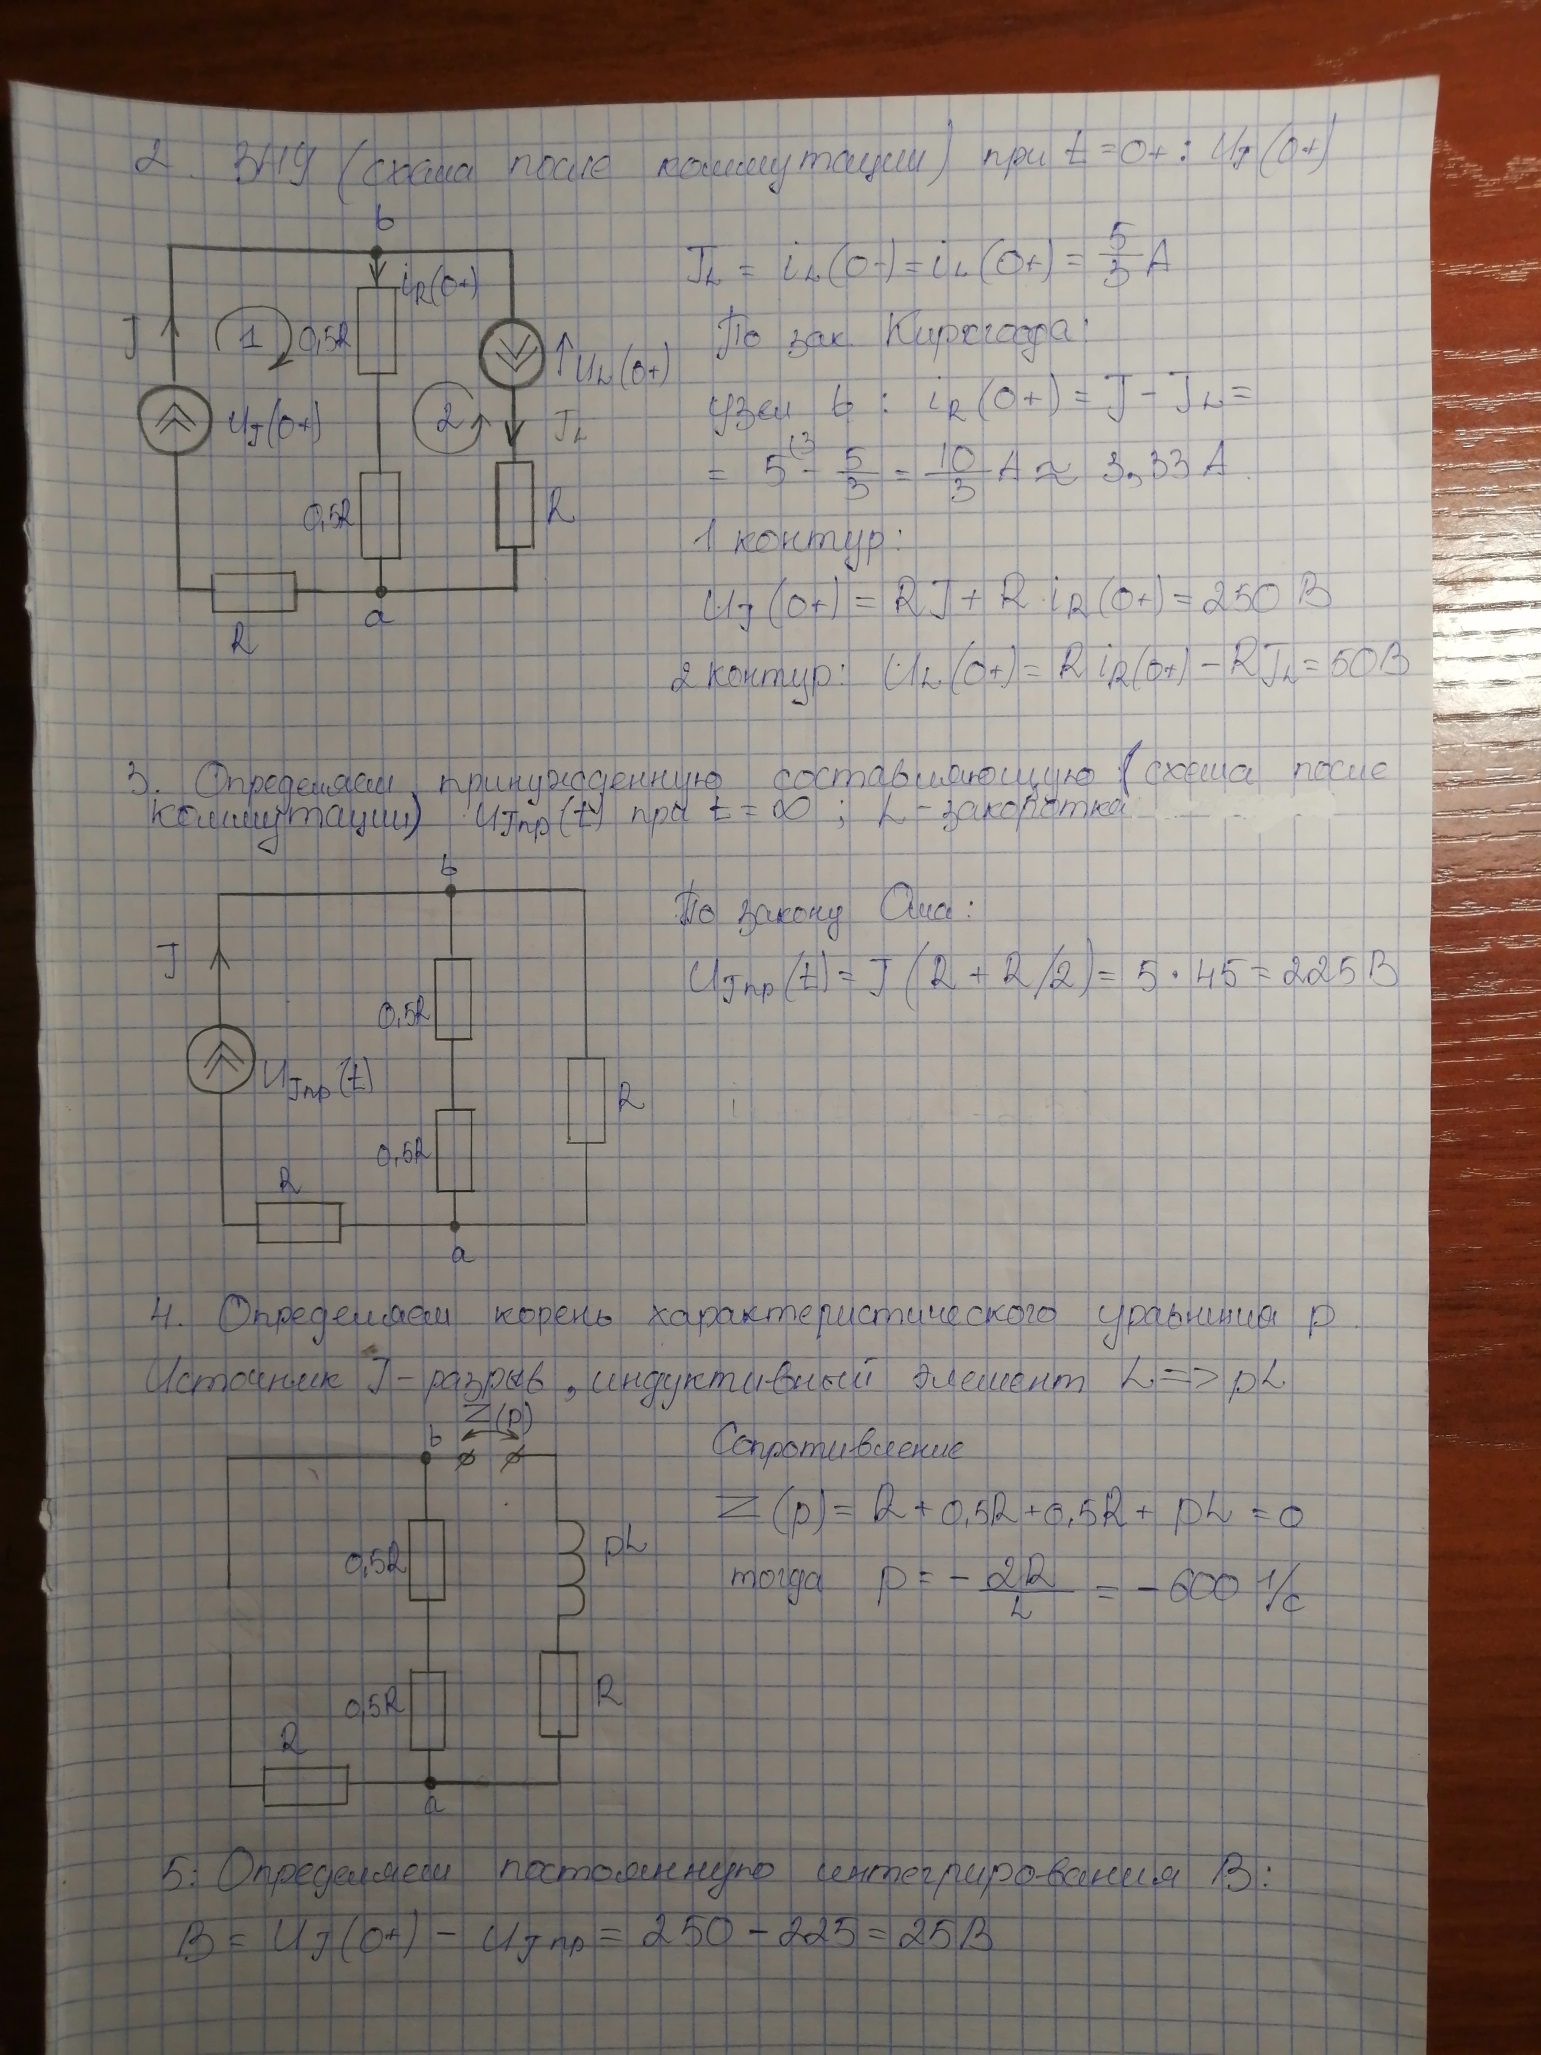 2. ЗНУ (схема после коммутации) при t=0+: U_J(0+)
b
i_R(0+)
J
1
0,5R
U_J(0+)
2
↑U_L(0+)
J_L
0,5R
R
R
a
J_L = i_L(0-) = i_L(0+) = 5/3 А
По зак. Кирхгофа:
узел b: i_R(0+) = J - J_L =
= 5^(3 - 5/3 = 10/3 А ≈ 3,33 А.
1 контур:
U_J(0+) = RJ + R·i_R(0+) = 250 В
2 контур: U_L(0+) = R i_R(0+) - RJ_L = 50 В
3. Определяем принужденную составляющую (схема после
коммутации) U_Jпр(t) при t = ∞; L - закоротка
b
J
0,5R
U_Jпр(t)
R
0,5R
R
a
По закону Ома:
U_Jпр(t) = J(R + R/2) = 5·45 = 225 В
4. Определяем корень характеристического уравниния p.
Источник J - разрыв, индуктивный элемент L => pL
Z(p)
b
0,5R
pL
0,5R
R
R
a
Сопротивление
Z(p) = R + 0,5R + 0,5R + pL = 0
тогда p = - 2R/L = -600 1/с
5: Определяем постоянную интегрирования B:
B = U_J(0+) - U_Jпр = 250 - 225 = 25 В